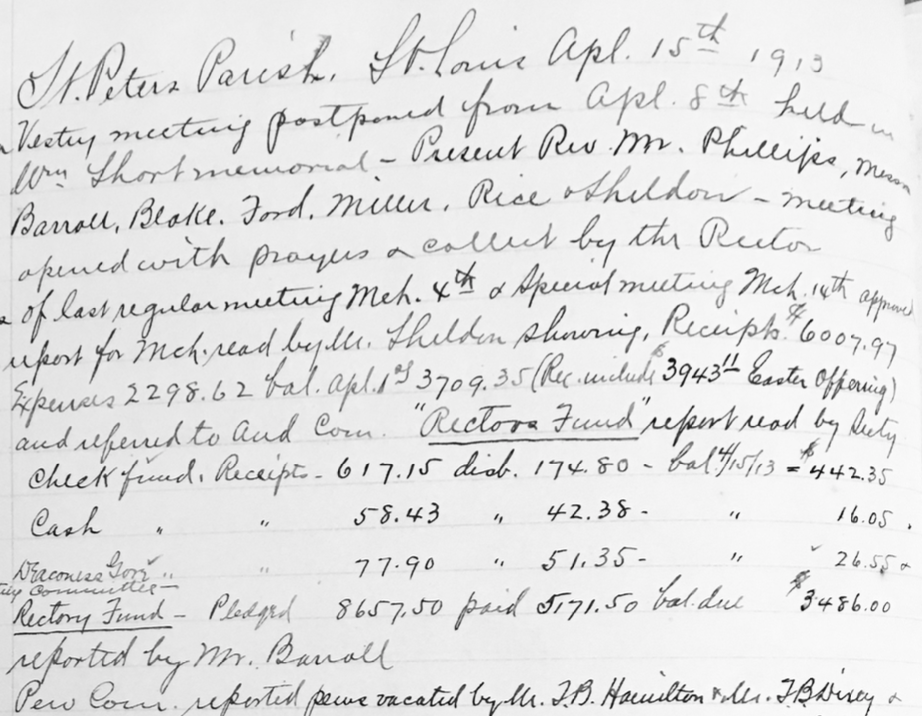 St. Peters Parish, St. Louis Apl. 15th 1913
Vestry meeting postponed from Apl. 8th held in
Wm Short memorial - Present Rev. Mr. Phillips, Messrs
Barroll, Blake, Ford, Miller, Rice & Sheldon - meeting
opened with prayers & collect by the Rector
of last regular meeting Mch. 4th & Special meeting Mch. 14th approved
report for Mch. read by Mr. Sheldon showing, Receipts $6007.97
Expenses 2298.62 bal. Apl. 1st 3709.35 (Rec. include $3943 11 Easter Offering)
and referred to Aud Com. "Rectors Fund" report read by Secty
Check fund, Receipts - 617.15 disb. 174.80 - bal 4/15/13 = $442.35
Cash " " 58.43 " 42.38 - " 16.05.
Deaconess Gore " " 77.90 " 51.35 - " 26.55 &
Committee -
Rectory Fund - Pledged 8657.50 paid 5171.50 bal. due $3486.00
reported by Mr. Barroll
Pew Com. reported pews vacated by Mr. F.B. Hamilton & Mr. &